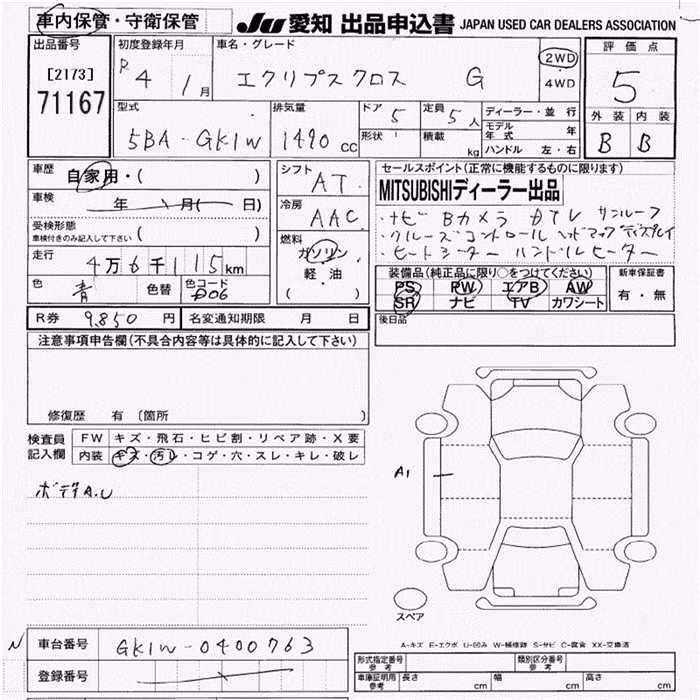 車内保管・守衛保管
JU 愛知 出品申込書 JAPAN USED CAR DEALERS ASSOCIATION
出品番号
[2173]
71167
初度登録年月
R 4 年 1月
車名・グレード
エクリプスクロス G
2WD
・
4WD
評価点
5
外装 内装
B B
型式
5BA-GK1W
排気量
1490 cc
ドア 5
形状
定員 5人
積載 kg
ディーラー・並行
モデル年式 年
ハンドル 左・右
車歴 自家用・( )
車検 年 月( 日)
受検形態
車検付きのみ記入して下さい ( )
走行 4万6千115km
色 青 色替 色コード D06
シフト AT
冷房 AAC
燃料
ガソリン
軽・油
( )
セールスポイント(正常に機能するものに限ります)
MITSUBISHIディーラー出品
・ナビ Bカメラ DTV サンルーフ
・クルーズコントロール ヘッドアップディスプレイ
・ヒートシーター ハンドルヒーター
装備品(純正品に限り○をつけてください)
PS PW エアB AW
SR ナビ TV カワシート
新車保証書
有・無
R券 9,850 円 名変通知期限 月 日
後日品
注意事項申告欄(不具合内容等は具体的に記入して下さい)
修復歴 有 〔箇所 〕
検査員
記入欄
FW キズ・飛石・ヒビ割・リペア跡・X要
内装 キズ・汚レ・コゲ・穴・スレ・キレ・破レ
ボデーA.U
A1
スペア
A-キズ E-エクボ U-凹み W-補修跡 S-サビ C-腐食 XX-交換済
N 車台番号 GK1W-0400763
登録番号
形式指定番号 参考
類別区分番号 参考
車庫証明用 参考 長さ cm 幅 cm 高さ cm